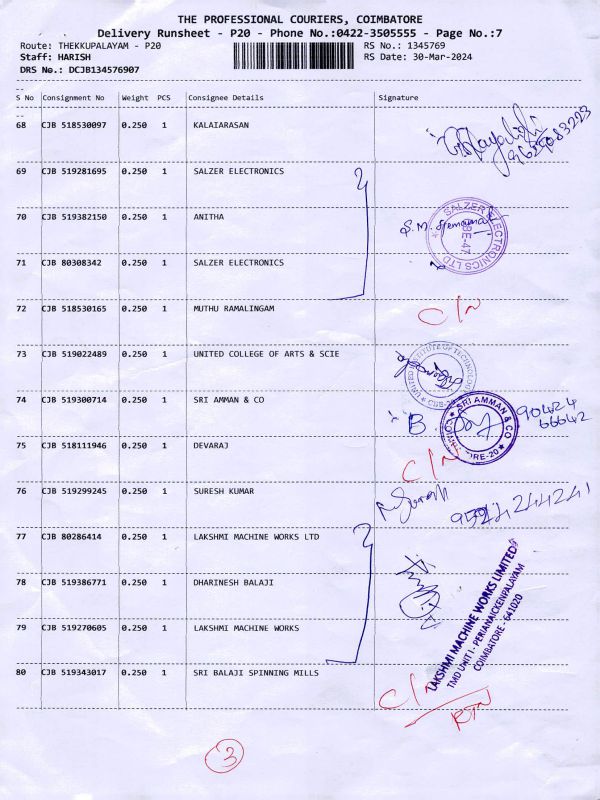 THE PROFESSIONAL COURIERS, COIMBATORE
Delivery Runsheet - P20 - Phone No.:0422-3505555 - Page No.:7
Route: THEKKUPALAYAM - P20 RS No.: 1345769
Staff: HARISH RS Date: 30-Mar-2024
DRS No.: DCJB134576907
S No Consignment No Weight PCS Consignee Details Signature
68 CJB 518530097 0.250 1 KALAIARASAN
69 CJB 519281695 0.250 1 SALZER ELECTRONICS
70 CJB 519382150 0.250 1 ANITHA S.M.
SALZER ELECTRONICS LTD
CBE-47
71 CJB 80308342 0.250 1 SALZER ELECTRONICS
72 CJB 518530165 0.250 1 MUTHU RAMALINGAM C/N
73 CJB 519022489 0.250 1 UNITED COLLEGE OF ARTS & SCIE
UNITED INSTITUTE OF TECHNOLOGY
74 CJB 519300714 0.250 1 SRI AMMAN & CO B. 90424
66642
SRI AMMAN & CO
75 CJB 518111946 0.250 1 DEVARAJ C/N
76 CJB 519299245 0.250 1 SURESH KUMAR Suresh
77 CJB 80286414 0.250 1 LAKSHMI MACHINE WORKS LTD
78 CJB 519386771 0.250 1 DHARINESH BALAJI
79 CJB 519270605 0.250 1 LAKSHMI MACHINE WORKS
LAKSHMI MACHINE WORKS LIMITED
TMD UNIT I - PERIANAICKENPALAYAM
COIMBATORE - 641020
80 CJB 519343017 0.250 1 SRI BALAJI SPINNING MILLS C/N
RTN
3